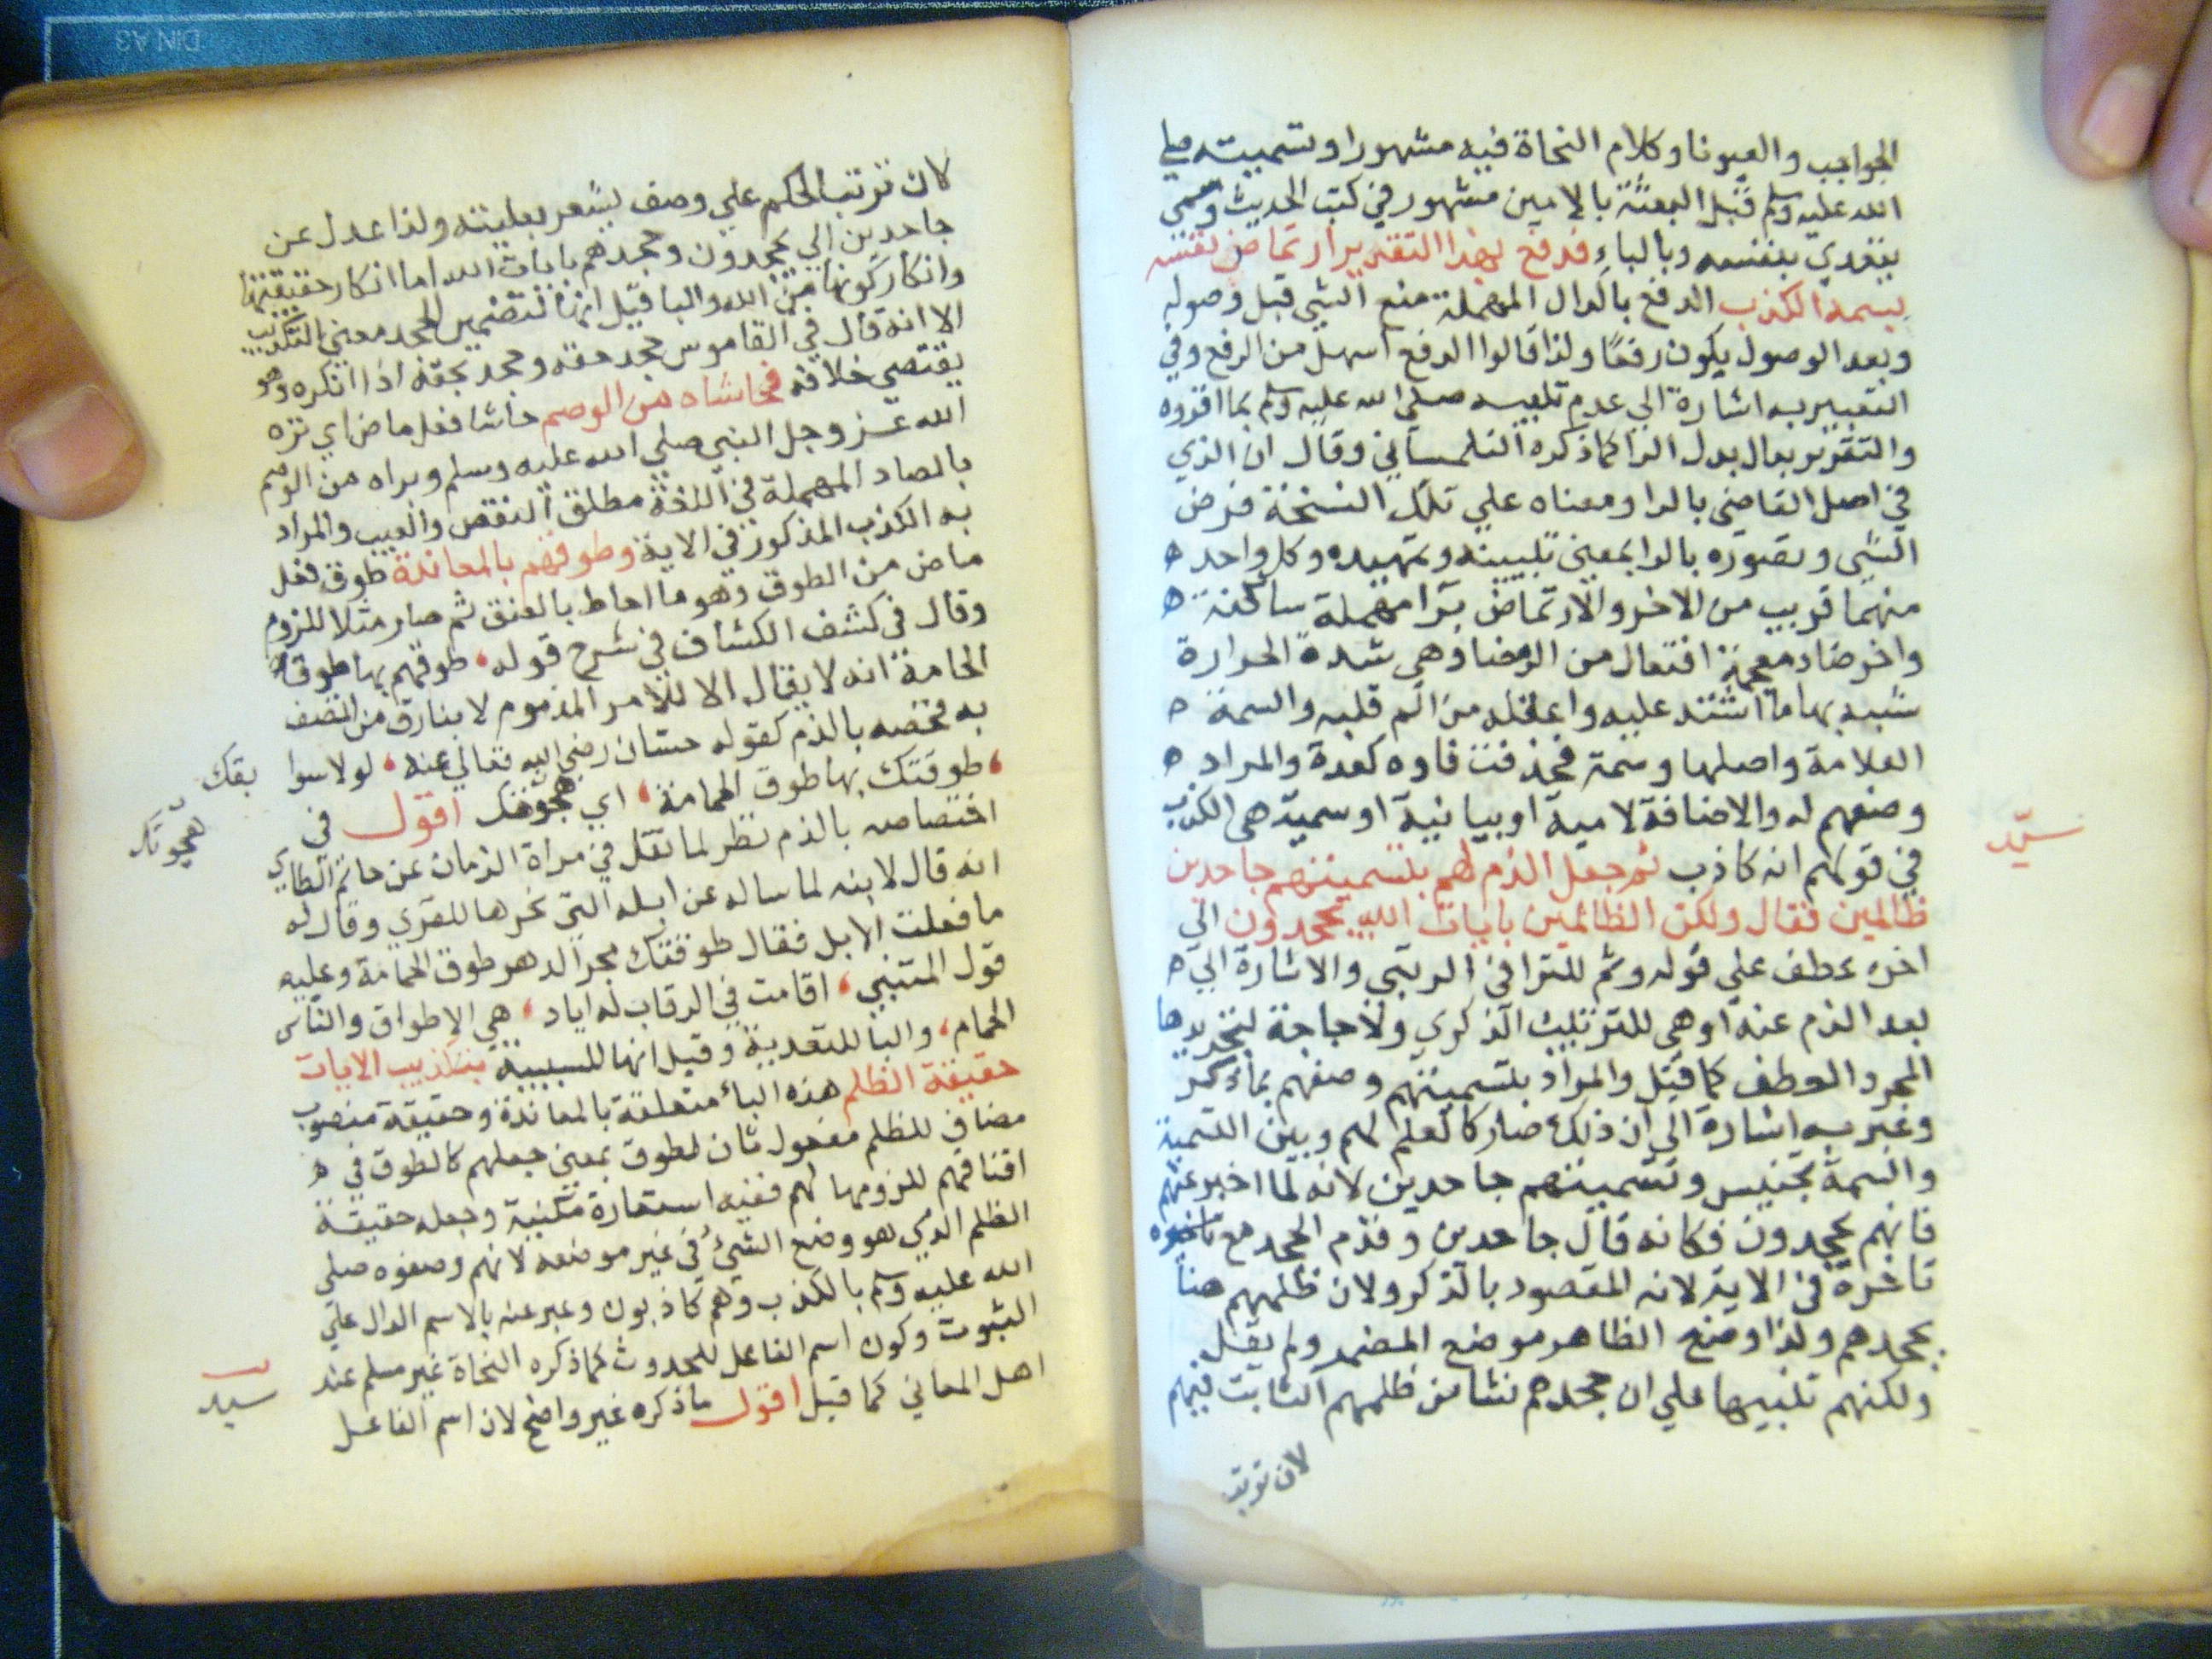 الجواجب والعيونا وكلام النحاة فيه مشهورا وتسميته صلي
الله عليه وسلم قبل البعثة بالامين مشهور في كتب الحديث وسمي
يتعدي بنفسه وبالباء فدفع بهذا التقرير ارتماض نفسه
بسمة الكذب الدفع بالدال المهملة منع الشي قبل وصوله
وبعد الوصول يكون رفعًا ولذا قالوا الدفع اسهل من الرفع وفي
التعبير به اشارة الي عدم تلبسه صلي الله عليه وسلم بما افتروه
والتقرير بدال بدل الرا كما ذكره التلمساني وقال ان الذي
في اصل القاضي بالرا ومعناه علي تلك النسخة فرض
الشي وتصوره بالرا بمعني تبيينه وتمهيده وكل واحد ه
منهما قريب من الاخر والارتماض برا مهملة ساكنة ه
واخره ضاد معجمة افتعال من الرمضا وهي شدة الحرارة
شبه بها ما اشتد عليه واعقله من الم قلبه والسمة ه
العلامة واصلها وسمة فحذفت فاوه كعدة والمراد ه
وصفهم له والاضافة لامية او بيانية او سمية هي الكذب
في قولهم انه كاذب ثم جعل الذم لهم بتسميتهم جاحدين
ظالمين فقال ولكن الظالمين بايات الله يجحدون الي
اخره عطف علي قوله وثم للتراخي الرتبي والاشارة الي ه
بعد الذم عنه او هي للترتيب الذكري ولا حاجة لتجريدها
لمجرد العطف كما قيل والمراد بتسميتهم وصفهم بما ذكر
وعبر به اشارة الي ان ذلك صار كالعلم لهم وبين التسمية
والسمة تجنيس وتسميتهم جاحدين لانه لما اخبر عنهم
فانهم يجحدون فكانه قال جاحدين وقدم الجحد مع تاخره
تاخره في الاية لانه المقصود بالذكر ولان ظلمهم هنا
بجحدهم ولذا وضع الظاهر موضع المضمر ولم يقل
ولكنهم تنبيها علي ان جحدهم نشا من ظلمهم الثابت فيهم
لان ترتب
سيد
لان ترتب الحكم علي وصف يشعر بعليته ولذا عدل عن
جاحدين الي يجحدون وجحدهم بايات الله اما انكار حقيقتها
وانكار كونها من الله والبا قيل انها لتضمين الجحد معني التكذيب
الا انه قال في القاموس جحد حقه وجحد بحقه اذا انكره وهو
يقتضي خلافه فحاشاه من الوصم حاشا فعل ماض اي نزه
الله عز وجل النبي صلي الله عليه وسلم وبراه من الوصم
بالصاد المهملة في اللغة مطلق النقص والعيب والمراد
به الكذب المذكور في الاية وطوقهم بالمعاندة طوق فعل
ماض من الطوق وهو ما احاط بالعنق ثم صار مثلا للزوم
وقال في كشف الكشاف في شرح قوله، طوقتهم بها طوق
الحامة انه لا يقال الا للامر المذموم لا بنارق من اتصف
به فخصه بالذم كقوله حسان رضي الله تعالي عنه، لولا سوا بقك
، طوقتك بها طوق الحمامة، اي هجوتك اقول في
هجوتك
اختصاصه بالذم نظر لما نقل في مراة الزمان عن حاتم الطاي
انه قال لابنه لما ساله عن ابله التي نحرها للقري وقال له
ما فعلت الابل فقال طوقتك مجد الدهر طوق الحمامة وعليه
قول المتنبي، اقامت في الرقاب له اياد، هي الاطواق والناس
الحمام، والبا للتعدية وقيل انها للسببية بتكذيب الايات
حقيقة الظلم هذه البا متعلقة بالمعاندة وحقيقة منصوب
مضاف للظلم مفعول ثان لطوق بمعني جعلهم كالطوق في ه
اعناقهم للزومها لهم ففيه استعارة مكنية وجعله حقيقة
الظلم الذي هو وضع الشي في غير موضعه لانهم وصفوه صلي
الله عليه وسلم بالكذب وهم كاذبون وعبر عنه بالاسم الدال علي
الثبوت وكون اسم الفاعل للحدوث كما ذكره النحاة غير مسلم عند
اهل المعاني كما قيل اقول ما ذكره غير واضح لان اسم الفاعل
سيد